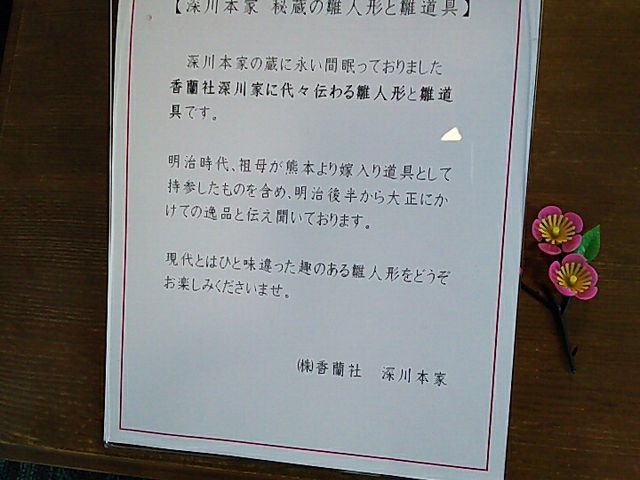 【深川本家 秘蔵の雛人形と雛道具】
深川本家の蔵に永い間眠っておりました
香蘭社深川家に代々伝わる雛人形と雛道
具です。
明治時代、祖母が熊本より嫁入り道具として
持参したものを含め、明治後半から大正にか
けての逸品と伝え聞いております。
現代とはひと味違った趣のある雛人形をどうぞ
お楽しみくださいませ。
㈱香蘭社 深川本家